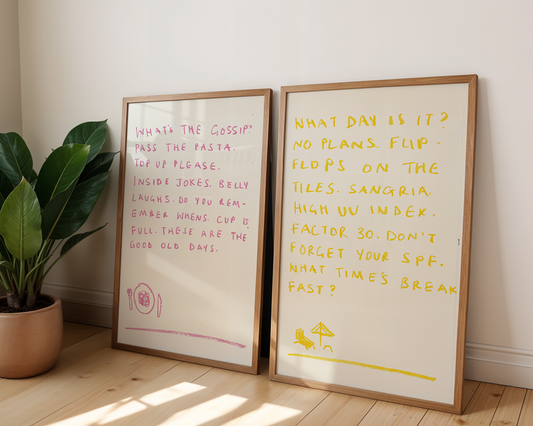 WHAT'S THE GOSSIP?
PASS THE PASTA.
TOP UP PLEASE.
INSIDE JOKES. BELLY
LAUGHS. DO YOU REM-
EMBER WHENS. CUP IS
FULL. THESE ARE THE
GOOD OLD DAYS.
WHAT DAY IS IT?
NO PLANS. FLIP-
FLOPS ON THE
TILES. SANGRIA.
HIGH UV INDEX.
FACTOR 30. DON'T
FORGET YOUR SPF.
WHAT TIME'S BREAK
FAST?